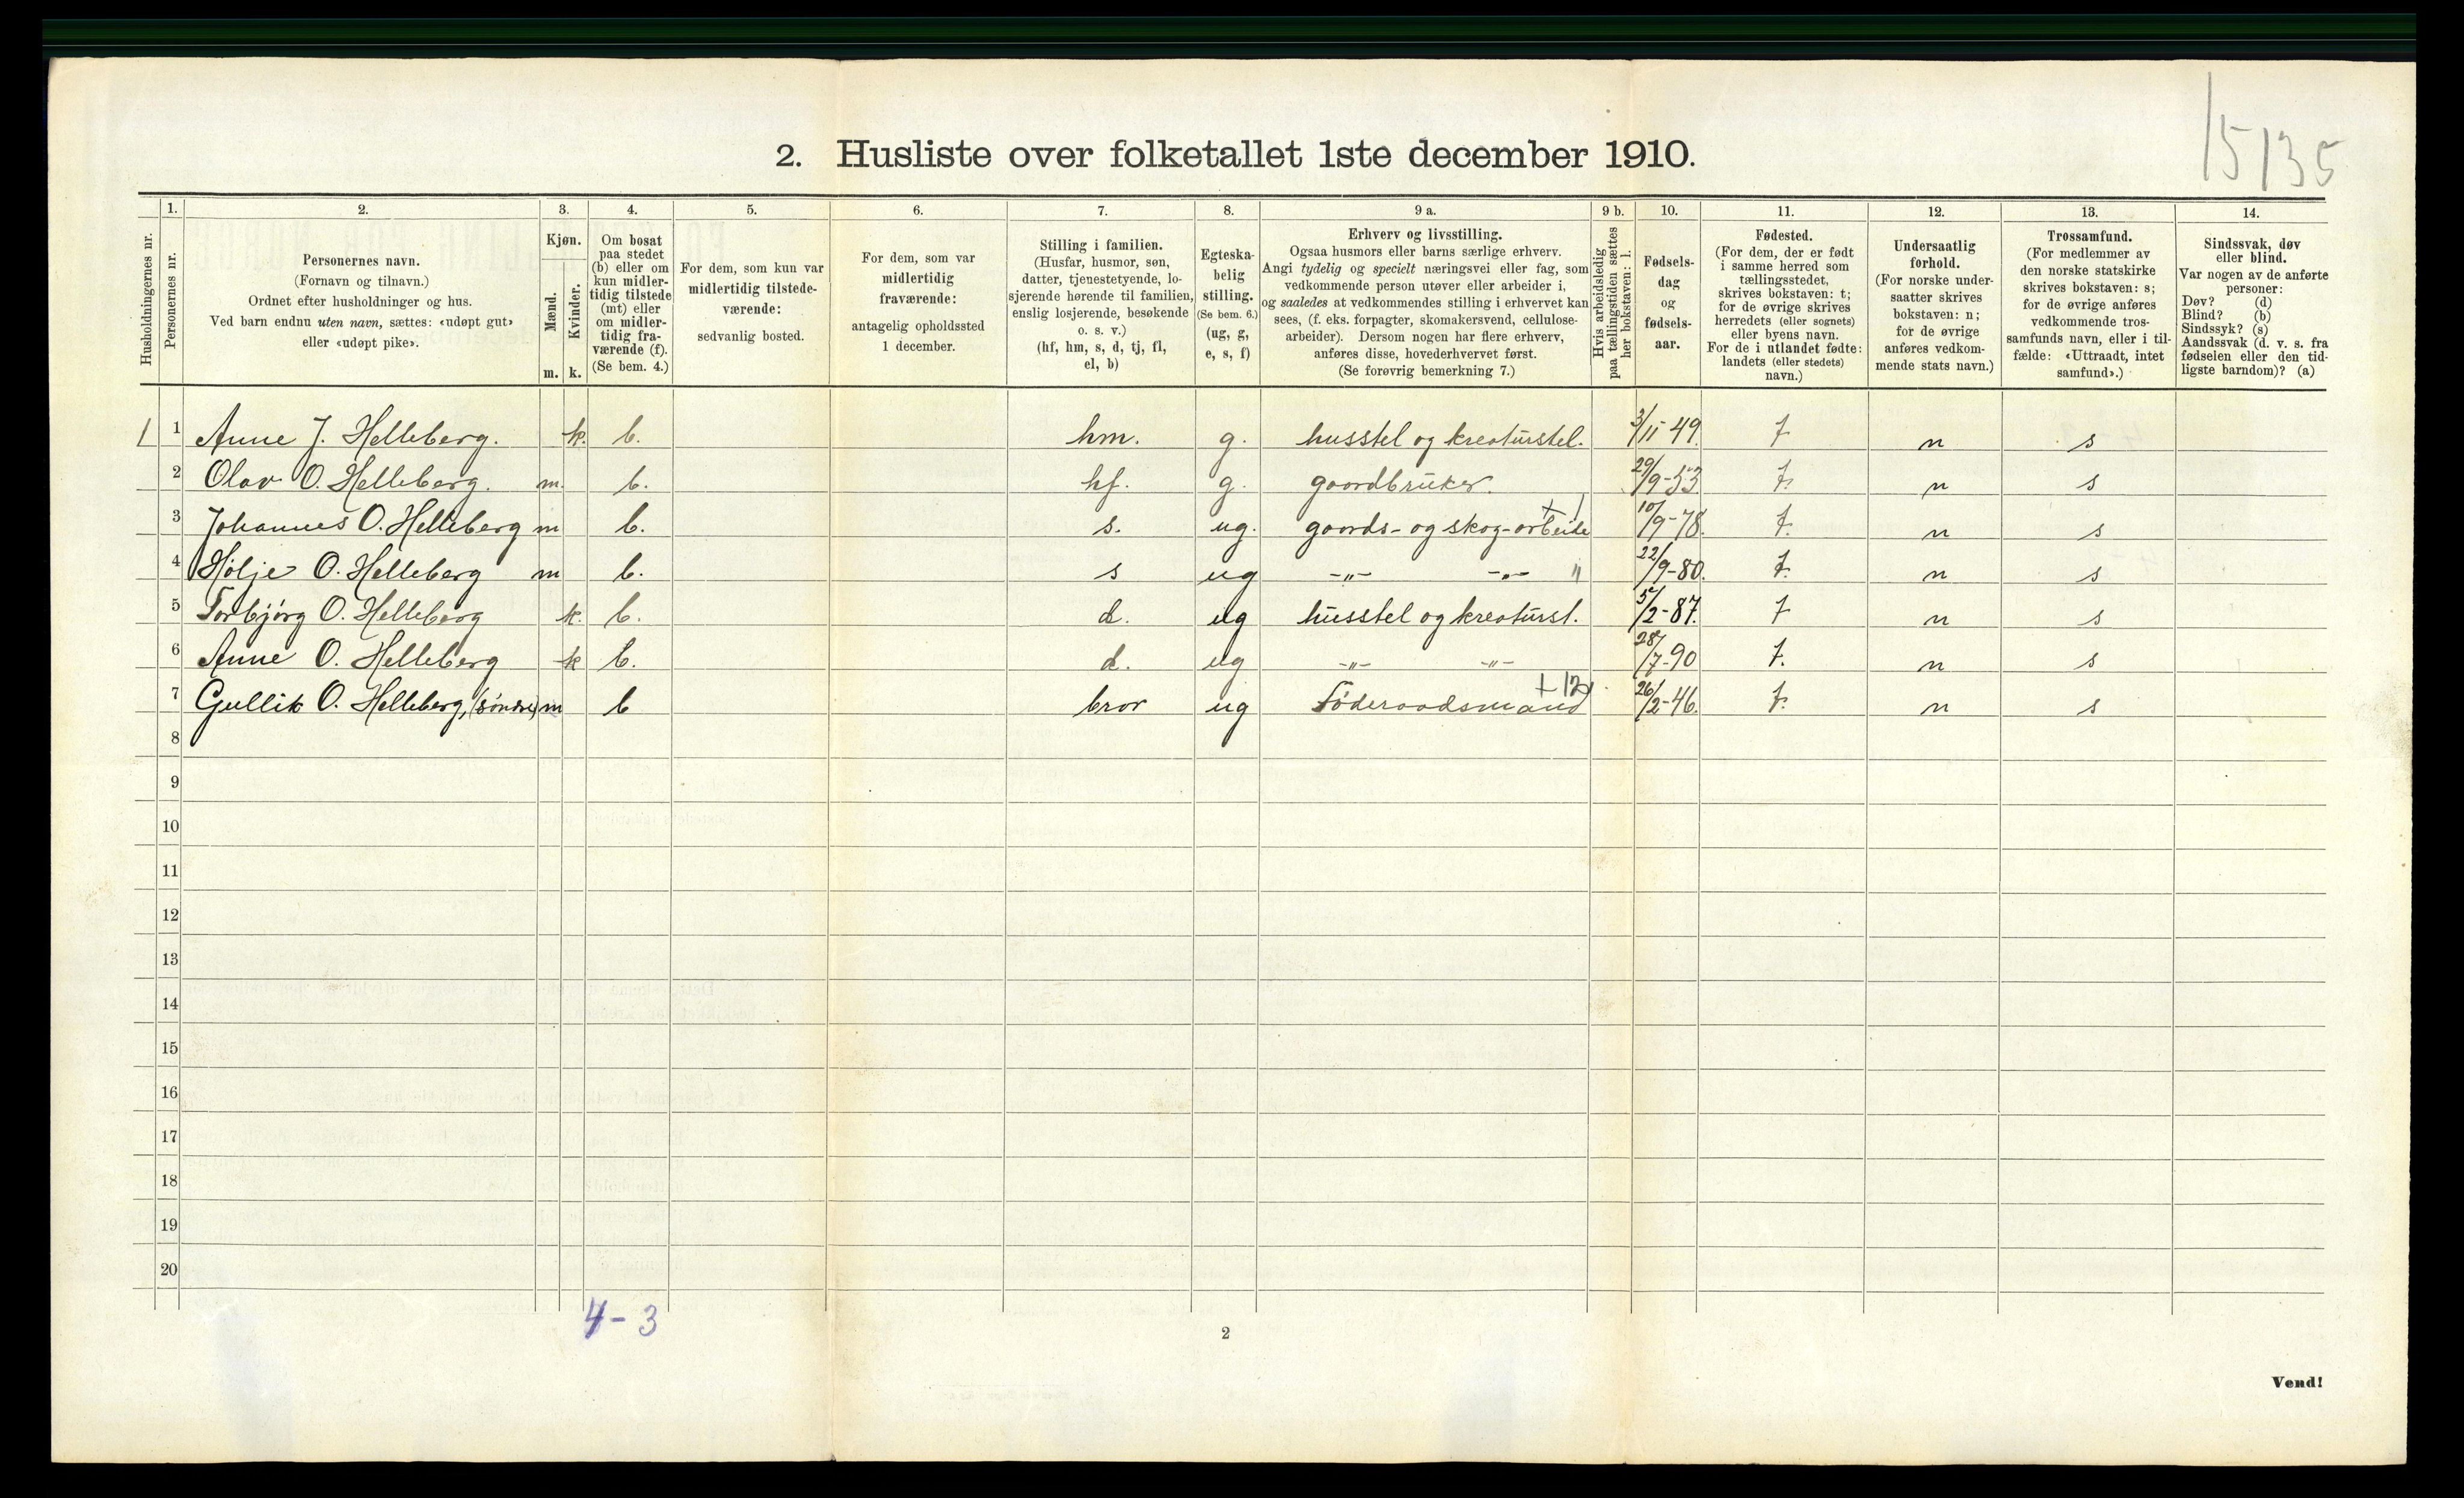 15/35
2. Husliste over folketallet 1ste december 1910.
Husholdningernes nr.
1. Personernes nr.
2. Personernes navn.
(Fornavn og tilnavn.)
Ordnet efter husholdninger og hus.
Ved barn endnu uten navn, sættes: «udøpt gut»
eller «udøpt pike».
3. Kjøn.
Mænd. Kvinder.
m. k.
4. Om bosat
paa stedet
(b) eller om
kun midler-
tidig tilstede
(mt) eller
om midler-
tidig fra-
værende (f).
(Se bem. 4.)
5. For dem, som kun var
midlertidig tilstede-
værende:
sedvanlig bosted.
6. For dem, som var
midlertidig
fraværende:
antagelig opholdssted
1 december.
7. Stilling i familien.
(Husfar, husmor, søn,
datter, tjenestetyende, lo-
sjerende hørende til familien,
enslig losjerende, besøkende
o. s. v.)
(hf, hm, s, d, tj, fl,
el, b)
8. Egteska-
belig
stilling.
(Se bem. 6.)
(ug, g,
e, s, f)
9 a. Erhverv og livsstilling.
Ogsaa husmors eller barns særlige erhverv.
Angi tydelig og specielt næringsvei eller fag, som
vedkommende person utøver eller arbeider i,
og saaledes at vedkommendes stilling i erhvervet kan
sees, (f. eks. forpagter, skomakersvend, cellulose-
arbeider). Dersom nogen har flere erhverv,
anføres disse, hovederhvervet først.
(Se forøvrig bemerkning 7.)
9 b. Hvis arbeidsledig
paa tællingstiden sættes
her bokstaven: l.
10. Fødsels-
dag
og
fødsels-
aar.
11. Fødested.
(For dem, der er født
i samme herred som
tællingsstedet,
skrives bokstaven: t;
for de øvrige skrives
herredets (eller sognets)
eller byens navn.
For de i utlandet fødte:
landets (eller stedets)
navn.)
12. Undersaatlig
forhold.
(For norske under-
saatter skrives
bokstaven: n;
for de øvrige
anføres vedkom-
mende stats navn.)
13. Trossamfund.
(For medlemmer av
den norske statskirke
skrives bokstaven: s;
for de øvrige anføres
vedkommende tros-
samfunds navn, eller i til-
fælde: «Uttraadt, intet
samfund».)
14. Sindssvak, døv
eller blind.
Var nogen av de anførte
personer:
Døv? (d)
Blind? (b)
Sindssyk? (s)
Aandssvak (d. v. s. fra
fødselen eller den tid-
ligste barndom)? (a)
1 1 Anne J. Helleberg. k. b. hm. g. husstel og kreaturstel. 3/11-49. t n s
2 Olav O. Helleberg. m. b. hf. g. gaardbruker. 29/9-53. t. n s
3 Johannes O. Helleberg m b. s. ug. gaards- og skog-arbeide 10/9-78. t. n s
4 Hølje O. Helleberg m b. s ug -"- -"- " 22/9-80. t. n s
5 Torbjørg O. Helleberg k. b. d. ug husstel og kreaturst. 5/2-87. t n s
6 Anne O. Helleberg k b. d. ug -"- -"- 28/7-90 t. n s
7 Gullik O. Helleberg, (søndre) m b bror ug Föderaadsmand 26/2-46. t. n s
8
9
10
11
12
13
14
15
16
17
18
19
20
4-3
2
Vend!